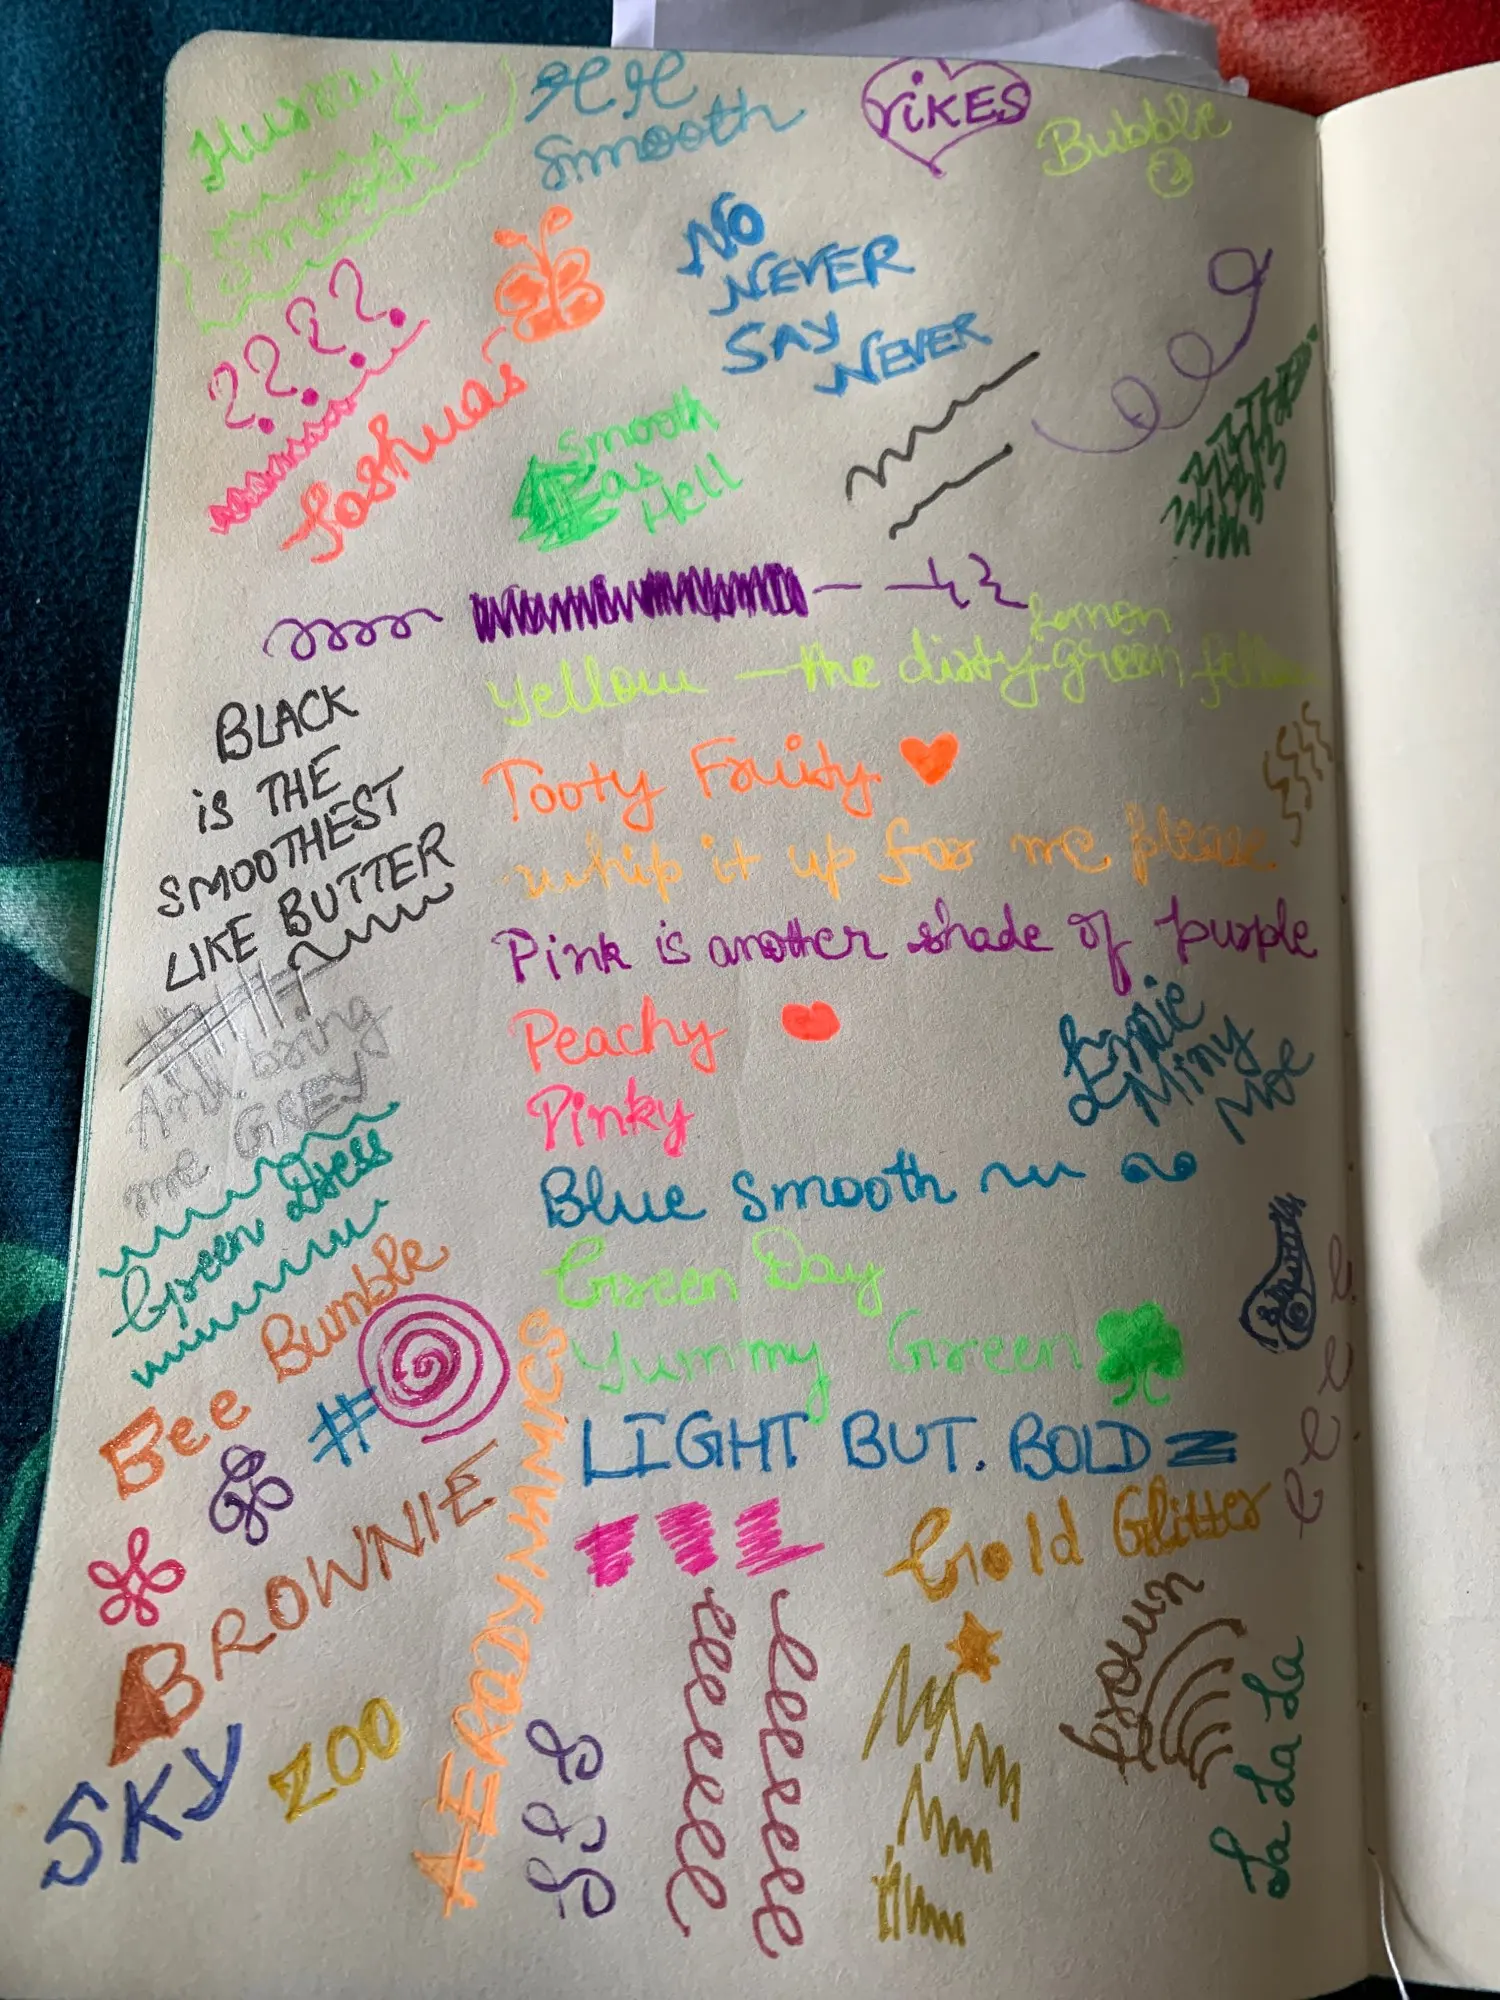 Hurray
Smooth
H H
Smooth
YIKES
Bubble
????
Joshuas
NO
NEVER
SAY
NEVER
Smooth
as
Hell
Lemon
Yellow - the dirty green
Tooty Fruity
whip it up for me please
Pink is another shade of purple
Peachy
Pinky
Blue Smooth
Green Day
Yummy Green
LIGHT BUT. BOLD
Gold Glitter
BLACK
iS THE
SMOOTHEST
LIKE BUTTER
bring
me GREY
Green Dress
Bee Bumble
#
BROWNIE
SKY
ZOO
AERODYNAMICS
Miny
Moe
Brown
La La La